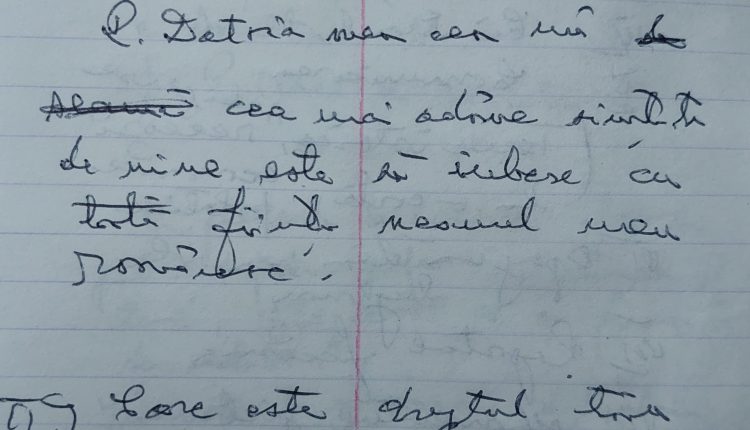 R. Datoria mea cea mă de
seamă cea mă adânc simtită
de mine este să iubesc cu
totă ființa neamul meu
românesc.
II) Care este dreptul tău